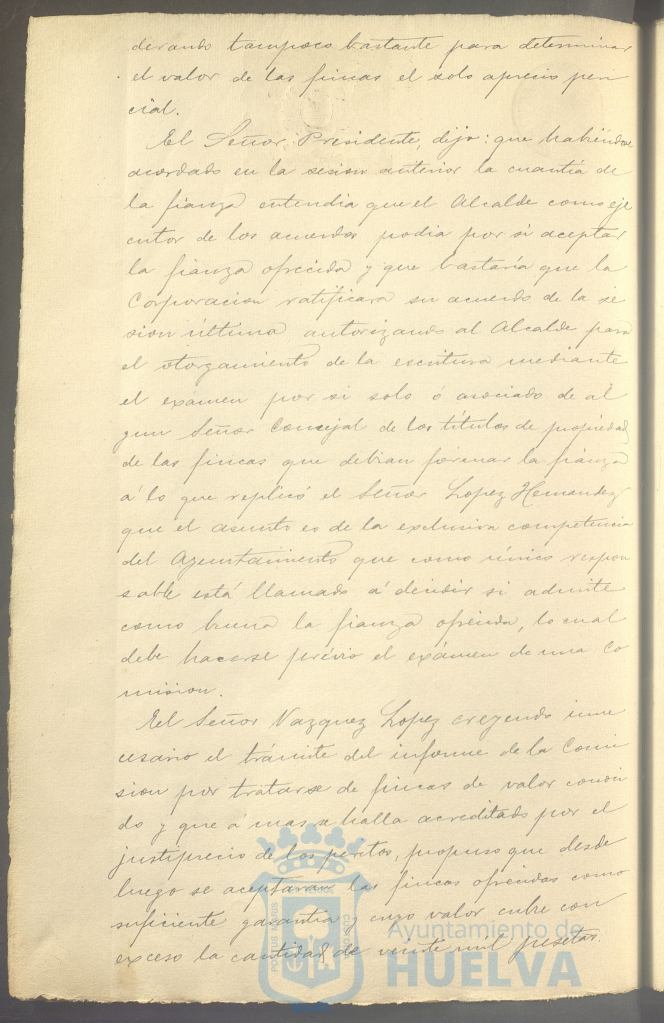 derando tampoco bastante para determinar
el valor de las fincas el solo aprecio peri
cial.
El Señor Presidente, dijo: que habiéndose
acordado en la sesion anterior la cuantía de
la fianza entendia que el Alcalde como eje
cutor de los acuerdos podia por si aceptar
la fianza ofrecida y que bastaría que la
Corporacion ratificara su acuerdo de la se
sion última autorizando al Alcalde para
el otorgamiento de la escritura mediante
el exámen por si solo ó asociado de al
gun Señor Concejal de los títulos de propiedad
de las fincas que debian formar la fianza
á lo que replicó el Señor Lopez Hernandez
que el asunto es de la exclusiva competencia
del Ayuntamiento que como único respon
sable está llamado á decidir si admite
como buena la fianza ofrecida, lo cual
debe hacerse prévio el exámen de una Co
mision.
El Señor Vazquez Lopez creyendo inne
cesario el trámite del informe de la Comi
sion por tratarse de fincas de valor conoci
do y que a mas se halla acreditado por el
justiprecio de los peritos, propuso que desde
luego se aceptaran las fincas ofrecidas como
suficiente garantía y cuyo valor cubre con
exceso la cantidad de veinte mil pesetas.
Ayuntamiento de
HUELVA